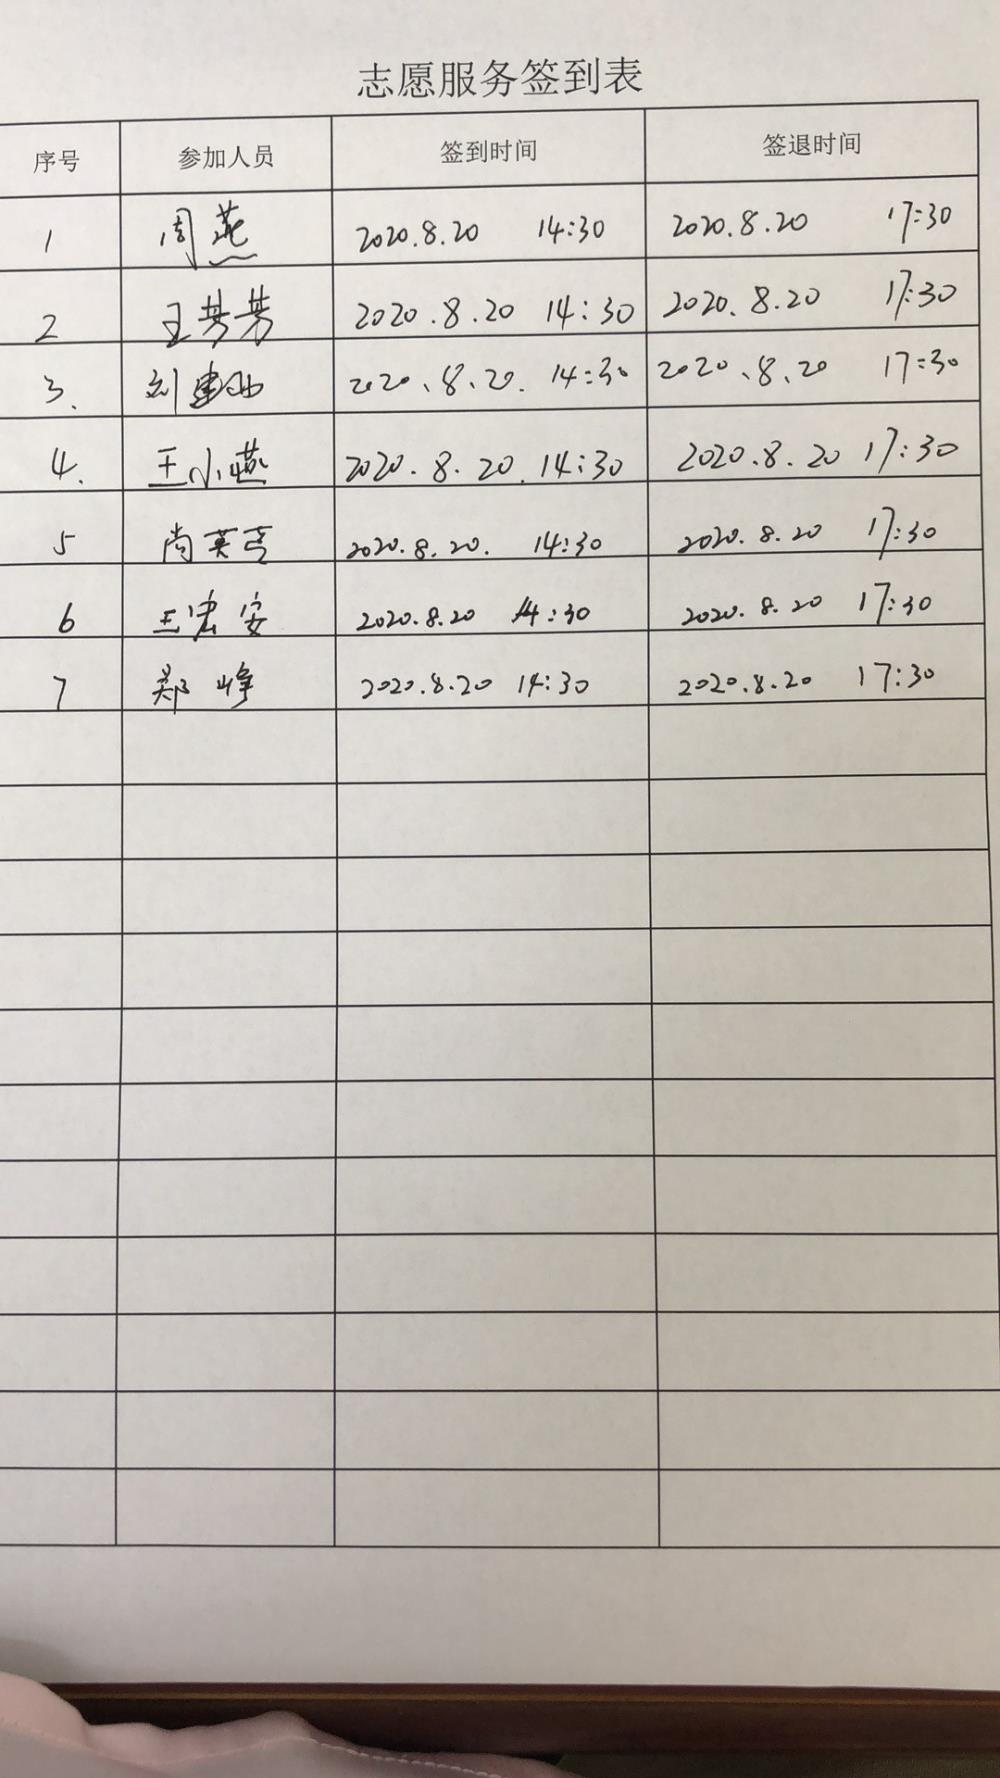 志愿服务签到表
序号 参加人员 签到时间 签退时间
1 周燕 2020.8.20 14:30 2020.8.20 17:30
2 王芳芳 2020.8.20 14:30 2020.8.20 17:30
3. 刘建 2020、8、20. 14:30 2020、8、20 17:30
4. 王小燕 2020.8.20. 14:30 2020.8.20 17:30
5 尚英 2020.8.20. 14:30 2020.8.20 17:30
6 王宏安 2020.8.20 14:30 2020.8.20 17:30
7 郑峥 2020.8.20 14:30 2020.8.20 17:30